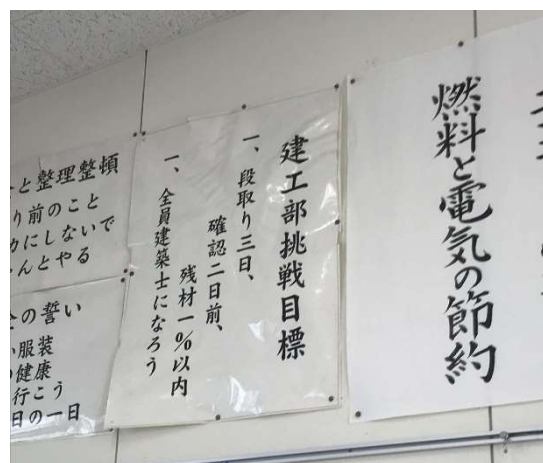 燃料と電気の節約
建工部挑戦目標
一、段取り三日、
確認二日前、
残材一%以内
一、全員建築士になろう
と整理整頓
り前のこと
カにしないで
んとやる
の誓い
服装
健康
行こう
日の一日